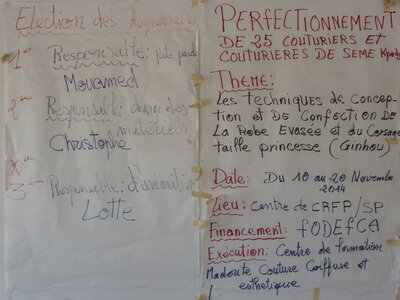 Election des Responsables
1er Responsable: porte parole
Mouamed
2ème Responsable: chargé des
matériels
Christophe
3ème Responsable: d'animation
Lotte
PERFECTIONNEMENT
DE 25 COUTURIERS ET
COUTURIERES DE SEME Kpodji
THEME:
Les techniques de concep-
tion et DE CONFECTION DE
La Robe Evasée et du Corsage
taille princesse (Ginhou)
DATE: Du 10 au 20 Novembre
2014
Lieu: Centre de CRFP/SP
Financement: FODEFCA
Exécution: Centre de formation
Couture Coiffure et
esthétique